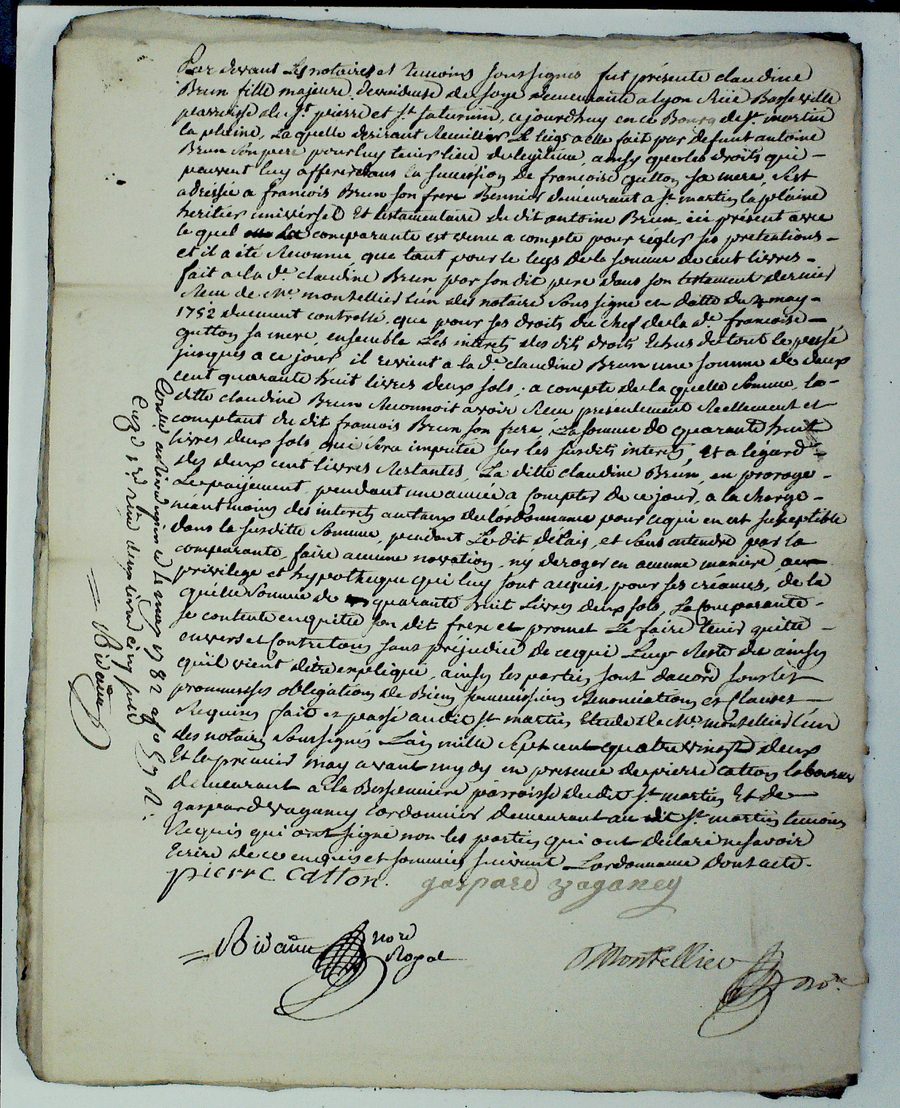 Par devant Les notaires et temoins soussignes fut présente claudine
Brun fille majeure devuideuse de soye demeurante a lyon Rüe Basseville
parroisse de St. pierre et St. saturnin, ce jourdhuy en ce Bourg de St. martin
la pleine, La quelle desirant Recuillir Le legs a elle fait par defunt antoine
Brun son pere pour luy tenir lieu de legitime, ainsy que les droits qui
peuvent luy afferer dans la succession de francoise guitton sa mere, s'est
adressée a francois Brun son frere demeurant a St martin la plaine
heritier universel Et testamentaire du dit antoine Brun, ici présent avec
le quel la comparante est venue a compte pour régler ses pretentions
et il a été Reconnu que tant pour le legs de la somme de cent livres
fait a la de. claudine Brun par son dit pere dans son testament dernier
Reçu de Me. montellier l'un des notaire Sous signé en datte du 4 may
1752 duement controllé, que pour ses droits du chef de la de. francoise
guitton sa mere, ensemble Les interets des dits droits Echus de tout le passé
jusques a ce jour, il revient a la de. claudine Brun une somme de deux
cent quarante huit livres deux sols, a compte de la quelle somme, la
ditte claudine Brun Reconnoit avoir Reçu presentement Reellement et
comptant du dit francois Brun son frere La somme de quarante huit
livres deux sols qui sera imputée sur les susdits interets, Et a légard
des deux cent livres Restantes, La ditte claudine Brun, en proroge
Le paÿement, pendant une année a compter de ce jour, a la charge
néant moins des interets au taux de l'ordonnance pour ce qui en est suseptible
dans la susditte somme, pendant Le dit délais, et sans entendre par la
comparante, faire aucune novation, ny deroger en aucune maniere, au
privilege et hypotheque qui luy sont acquis, pour ses créances, de la
quelle somme de quarante huit Livres deux sols, La comparante
se contente en quitte son dit frere et promet Le faire tenir quitte
envers et Contre tous sans préjudice de ce qui Luy Reste dû ainsy
qu'il vient d'être expliqué, ainsy les parties sont d'accord sous les
promesses obligations de Biens soumissions Renonciations et Clauses
Requises fait et passé audit St martin Etude de Me. montellier l'un
des notaires soussignés L'an mille sept cent quatre vingt deux
Et le premier may avant mydy en presence de pierre catton laboureur
demeurant a la Bessonniere parroisse du dit St. martin Et de
gaspard vaganay Cordonnier demeurant au dit St martin temoins
Requis qui ont signé non les parties qui ont déclaré ne savoir
Ecrire de ce enquis et sommées suivant L'ordonnance dont acte.
pierre catton. gaspard vaganey
Bidaud nore Royal
Montellier nore
le 4 may 1782
Reçu deux livres cinq sols
Bidaud